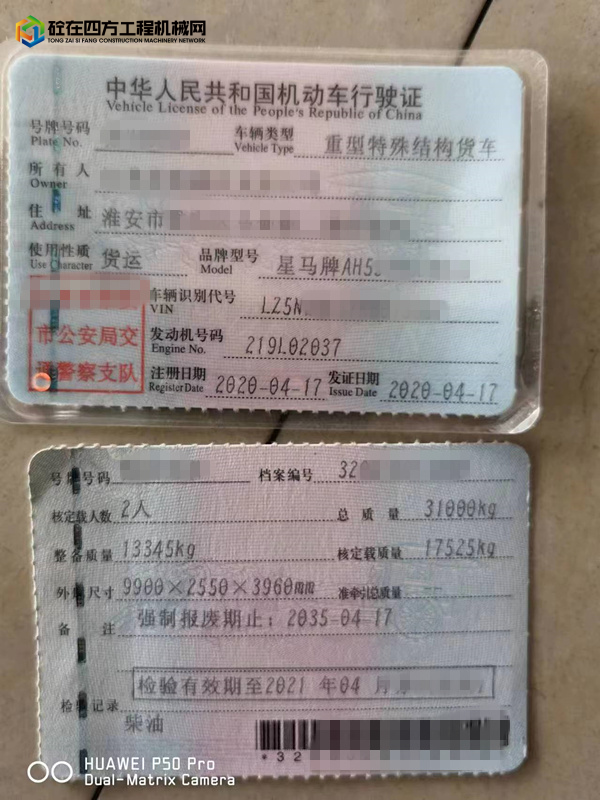 砼在四方工程机械网
TONG ZAI SI FANG CONSTRUCTION MACHINERY NETWORK
中华人民共和国机动车行驶证
Vehicle License of the People's Republic of China
号牌号码 车辆类型 重型特殊结构货车
Plate No. Vehicle Type
所有人
Owner
住 址 淮安市
Address
使用性质 货运 品牌型号 星马牌AH5
Use Character Model
车辆识别代号 LZ5N
VIN
市公安局交
警察支队
发动机号码 219L02037
Engine No.
注册日期 2020-04-17 发证日期 2020-04-17
Register Date Issue Date
号牌号码 档案编号 32
核定载人数 2人 总质量 31000kg
整备质量 13345kg 核定载质量 17525kg
外廓尺寸 9900×2550×3960mm 准牵引总质量
备 注 强制报废期止：2035-04-17
检验有效期至2021 年04 月
检验记录
柴油
*32
HUAWEI P50 Pro
Dual-Matrix Camera